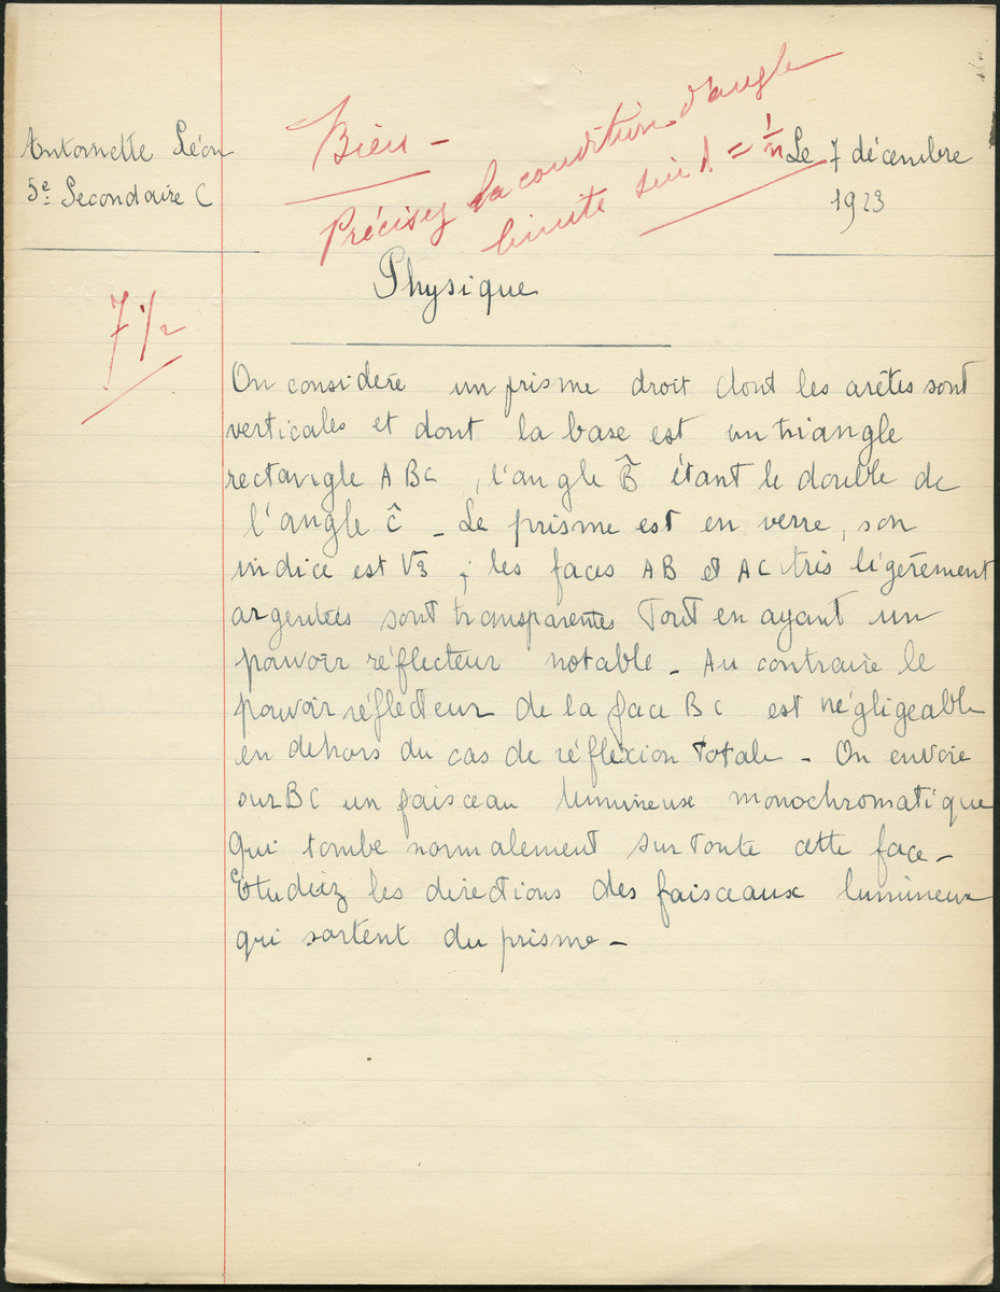 Antoinette Léon
5e Secondaire C
Bien -
Précisez la condition d'angle
limite sin λ = 1/n
Le 7 décembre
1923
Physique
7 1/2
On considère un prisme droit dont les arêtes sont
verticales et dont la base est un triangle
rectangle ABC, l'angle B̂ étant le double de
l'angle ĉ - Le prisme est en verre, son
indice est √3 ; les faces AB et AC très légèrement
argentées sont transparentes Tout en ayant un
pouvoir réflecteur notable - Au contraire le
pouvoir réflecteur de la face BC est négligeable
en dehors du cas de réflexion totale - On envoie
sur BC un faisceau lumineux monochromatique
qui tombe normalement sur toute cette face -
Etudiez les directions des faisceaux lumineux
qui sortent du prisme -